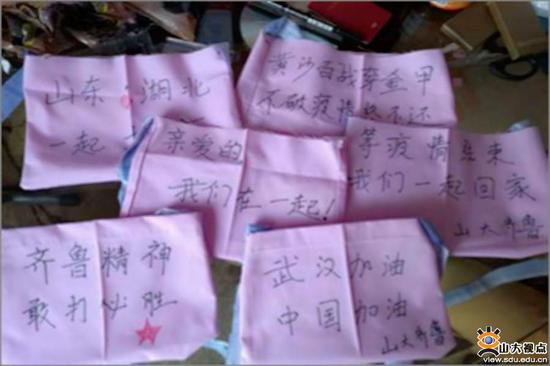 山东 湖北
一起
黄沙百战穿金甲
不破疫情终不还
亲爱的
我们在一起!
等疫情结束
我们一起回家
山大齐鲁
齐鲁精神
敢打必胜
武汉加油
中国加油
山大齐鲁
山大视点
www.view.sdu.edu.cn